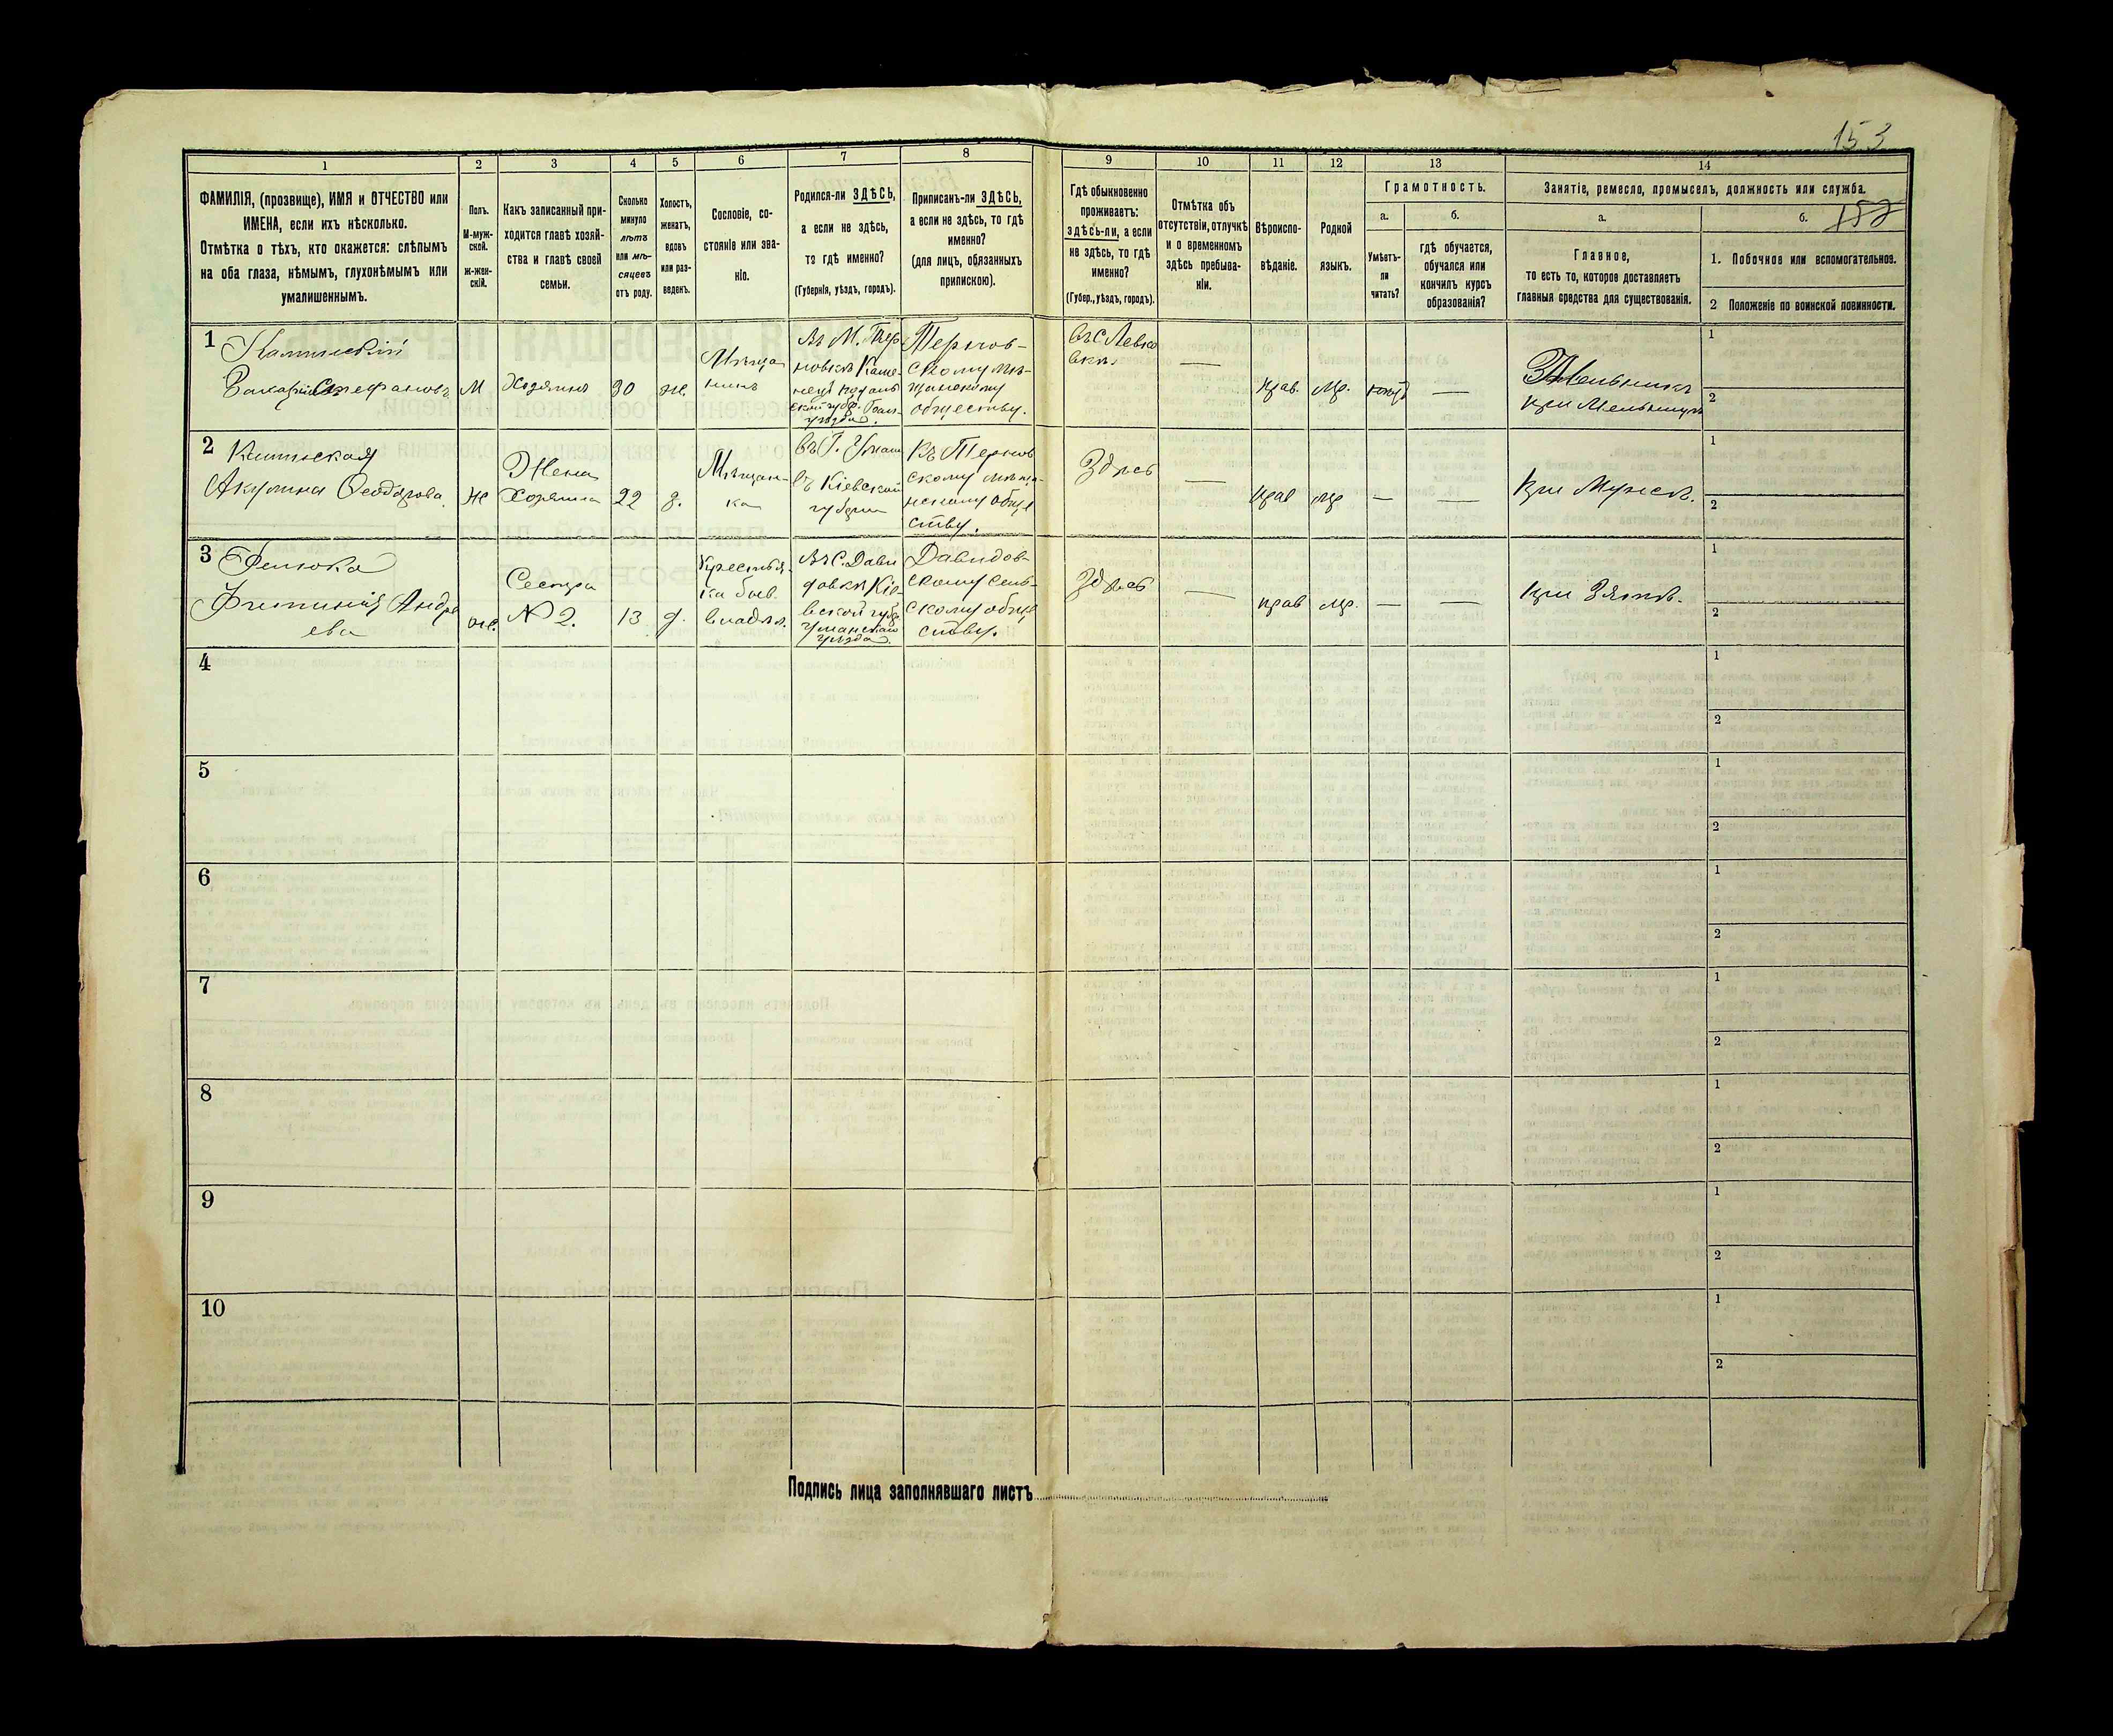 153
158
1
2
3
4
5
6
7
8
9
10
11
12
13
14
ФАМИЛІЯ, (прозвище), ИМЯ и ОТЧЕСТВО или
ИМЕНА, если ихъ нѣсколько.
Отмѣтка о тѣхъ, кто окажется: слѣпымъ
на оба глаза, нѣмымъ, глухонѣмымъ или
умалишеннымъ.
Полъ.
М-муж-
ской.
ж-жен-
скій.
Какъ записанный при-
ходится главѣ хозяй-
ства и главѣ своей
семьи.
Сколько
минуло
лѣтъ
или мѣ-
сяцевъ
отъ роду.
Холостъ,
женатъ,
вдовъ
или раз-
веденъ.
Сословіе, со-
стояніе или зва-
ніе.
Родился-ли ЗДѢСЬ,
а если не здѣсь,
то гдѣ именно?
(Губернія, уѣздъ, городъ).
Приписанъ-ли ЗДѢСЬ,
а если не здѣсь, то гдѣ
именно?
(для лицъ, обязанныхъ
припискою).
Гдѣ обыкновенно
проживаетъ:
здѣсь-ли, а если
не здѣсь, то гдѣ
именно?
(Губер., уѣздъ, городъ).
Отмѣтка объ
отсутствіи, отлучкѣ
и о временномъ
здѣсь пребыва-
ніи.
Вѣроиспо-
вѣданіе.
Родной
языкъ.
Грамотность.
а.
Умѣетъ-
ли
читать?
б.
гдѣ обучается,
обучался или
кончилъ курсъ
образованія?
Занятіе, ремесло, промыселъ, должность или служба.
а.
Главное,
то есть то, которое доставляетъ
главныя средства для существованія.
б.
1. Побочное или вспомогательное.
2 Положеніе по воинской повинности.
1
Захарій Стефановъ
М
Хозяинъ
30
же.
Мѣща
нинъ
Въ М. Тер
новкѣ Каме-
нецъ Подоль
ской губ.
уѣзда.
Тернов-
скому мѣ-
щанскому
обществу.
въ С Левко
вкѣ.
—
прав.
мр.
—
Мельникъ
при Мельницѣ
1
2
2
Акулина Феодорова
Ж
Жена
Хозяина
22
з.
Мѣщан-
ка
въ Г. Умани
въ Кіевской
губерніи
Къ Тернов
скому мѣща
нскому обще
ству.
Здѣсь
—
прав
мр
—
—
При Мужѣ.
1
2
3
Андре
ева
же.
Сестра
№ 2.
13
д.
Крестьян-
ка быв.
владѣл.
Въ С. Дави
довкѣ Кіе-
вской губ.
Уманскаго
уѣзда.
Давидов-
скому сель-
скому обще
ству.
Здѣсь
—
прав
мр.
—
—
При Зятѣ.
1
2
4
1
2
5
1
2
6
1
2
7
1
2
8
1
2
9
1
2
10
1
2
Подпись лица заполнявшаго листъ